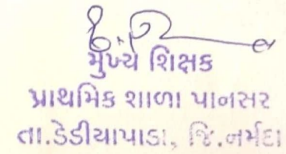 મુખ્ય શિક્ષક
પ્રાથમિક શાળા પાનસર
તા.ડેડીયાપાડા, જિ.નર્મદા